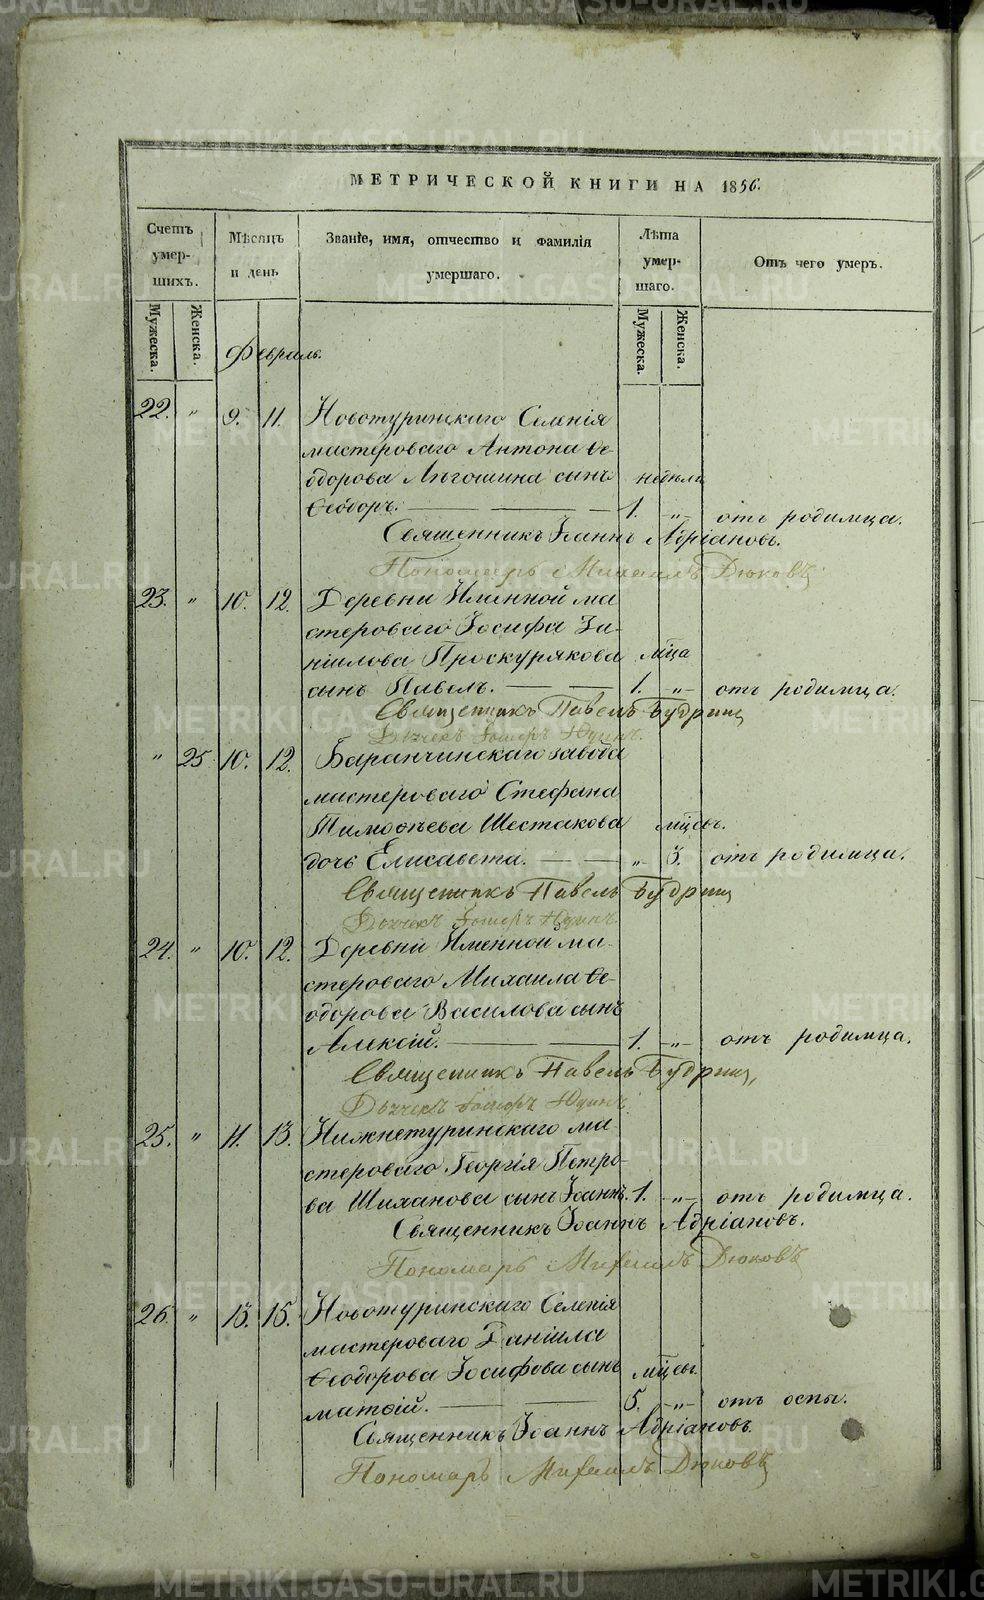 METRIKI.GASO-URAL.RU
МЕТРИЧЕСКОЙ КНИГИ НА 1856.
Счетъ умер-шихъ.
Мѣсяцъ и день
Званіе, имя, отчество и фамилія умершаго.
Лѣта умер-шаго.
Отъ чего умеръ.
Мужеска. Женска.
Мужеска. Женска.
Февраль.
22. " 9. 11. Новотуринскаго Селенія
мастероваго Антона Ѳе-
одорова Лѣгошина сынъ недѣли
Ѳеодоръ. — — — 1. -"- отъ родимца.
Священникъ Іоаннъ Адріановъ.
Пономарь Михаилъ Дюковъ
23. " 10. 12. Деревни Именной ма
стероваго Іосифа Да-
ніилова Проскурякова мца
сынъ Павелъ. — — 1. -"- отъ родимца.
Священникъ Павелъ Будрин
Дьячекъ Юдинъ.
" 25 10. 12. Баранчинскаго завода
мастероваго Стефана
Тимоѳѣева Шестакова мцы.
дочь Елисавета. — — " 3. отъ родимца.
Священникъ Павелъ Будрин
Дьячекъ Юдинъ
24. " 10. 12. Деревни Именной ма-
стероваго Михаила Ѳе-
одорова Василова сынъ
Алексій. — — 1. -"- отъ родимца.
Священникъ Павелъ Будрин,
Дьячекъ Юдинъ
25. " 11. 13. Нижнетуринскаго ма-
стероваго Георгія Петро-
ва Шиханова сынъ Іоаннъ. 1. -"- отъ родимца.
Священникъ Іоаннъ Адріановъ.
Пономарь Михаилъ Дюковъ
26. " 13. 15. Новотуринскаго Селенія
мастероваго Даніила
Ѳеодорова Іосифова сынъ мцы.
Матѳій. — — 5. -"- отъ оспы.
Священникъ Іоаннъ Адріановъ.
Пономарь Михаилъ Дюковъ